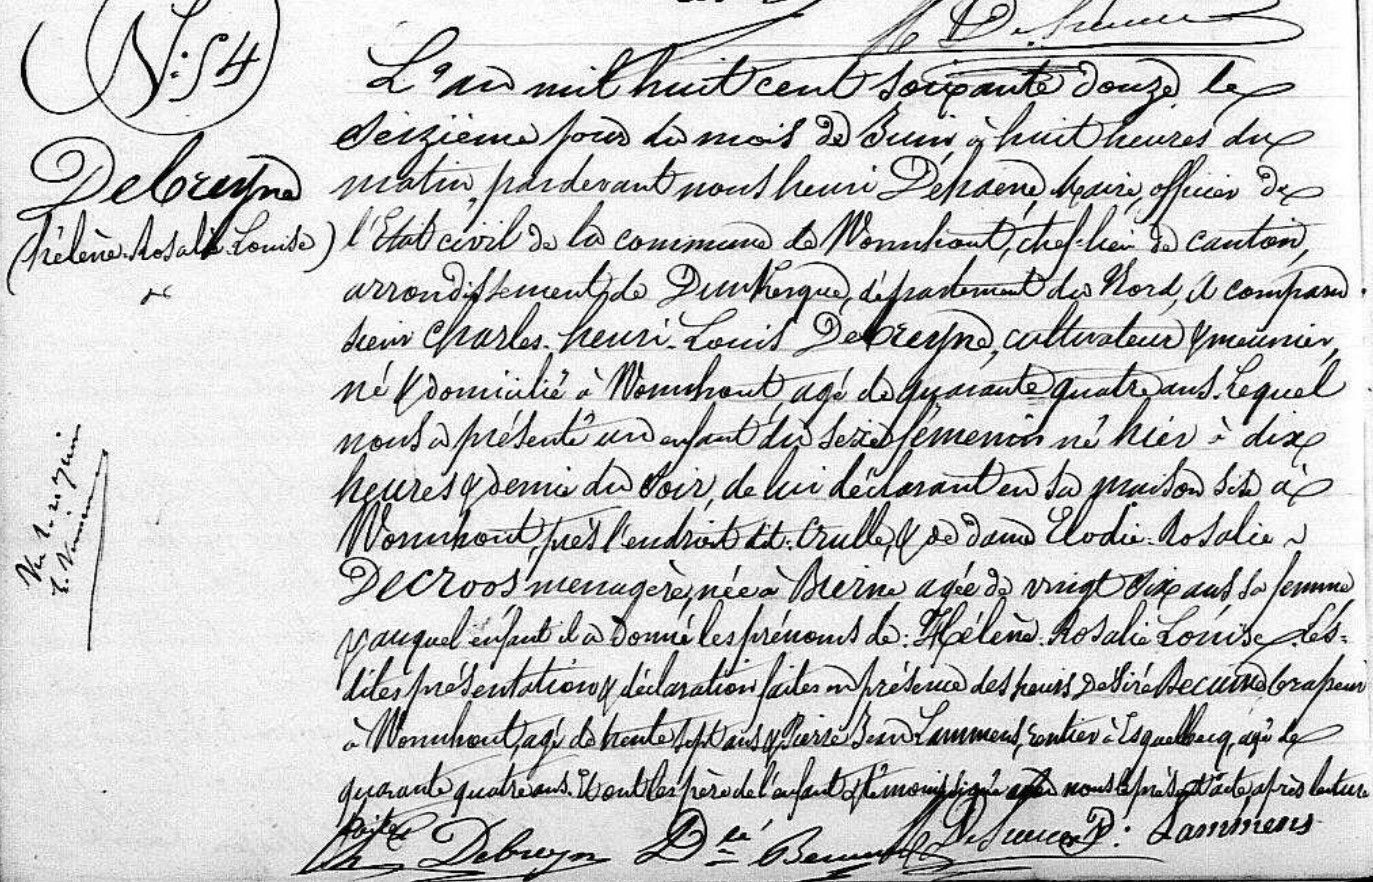 N.° 54
Debreyne
(hélène-Rosalie-Louise)
L'an mil huit cent soixante douze, le
seizième jour du mois de Juin à huit heures du
matin, pardevant nous henri Dehaene, Maire, officier de
l'Etat civil de la commune de Wormhout, chef-lieu de canton,
arrondissement de Dunkerque, département du Nord, a comparu
sieur Charles-henri-Louis Debreyne, cultivateur & meunier,
né & domicilié à Wormhout, agé de quarante quatre ans. Lequel
nous a présenté un enfant du sexe fémenin né hier à dix
heures & demie du soir, de lui déclarant en sa maison sise à
Wormhout, près l'endroit dit: Crulle, & de dame Elodie-Rosalie
Decroos ménagère, née à Bierne agée de vingt six ans sa femme
& auquel enfant il a donné les prénoms de: Hélène-Rosalie Louise. Les-
dites présentation & déclaration faites en présence des sieurs, Désiré drapeur
à Wormhout, agé de trente sept ans & Pierre Jean Lammens, rentier à Esquelbecq, agé de
quarante quatre ans. Et ont les père de l'enfant & témoins signé avec nous le présent acte après lecture
faite.
Debreyne Dré P. Lammens